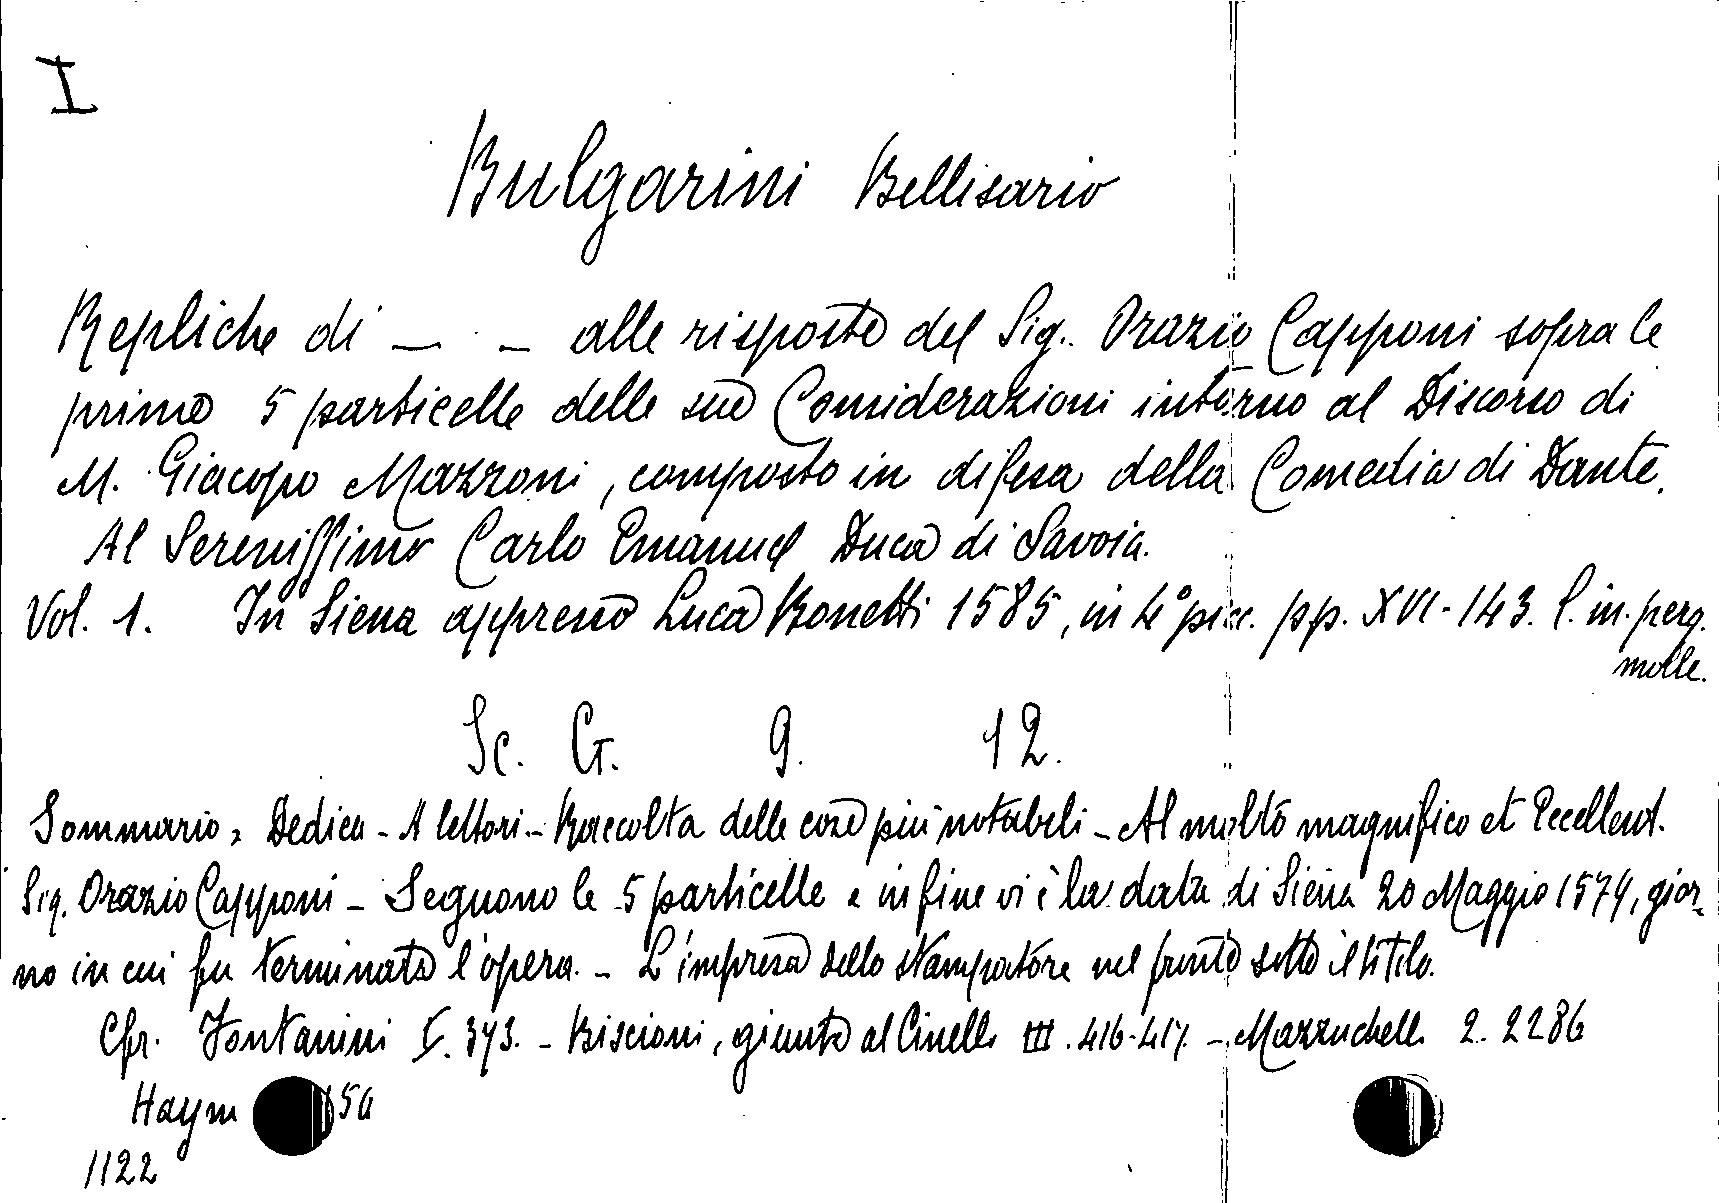 I
Bulgarini Bellisario
Repliche di — — alle risposte del Sig. Orazio Capponi sopra le
prime 5 particelle delle sue Considerazioni intorno al Discorso di
M. Giacopo Mazzoni, composto in difesa della Comedia di Dante.
Al Serenissimo Carlo Emanuel Duca di Savoia.
Vol. 1. In Siena appresso Luca Bonetti 1585, in 4° picc. pp. XVI-143. l. in. perg.
molle.
Sc. G. 9. 12.
Sommario, Dedica - A lettori - Raccolta delle cose più notabili - Al molto magnifico et Eccellent.
Sig. Orazio Capponi - Seguono le 5 particelle e in fine vi è la data di Siena 20 Maggio 1579, gior-
no in cui fu terminata l'opera. - L'impresa dello stampatore nel fronte sotto il titolo.
Cfr. Fontanini I. 343. - Biscioni, giunte al Cinelli III. 416-417. - Mazzuchelli 2. 2286
Haym
1122